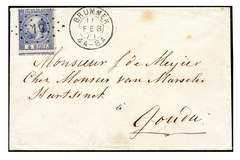 BRUMMEN
11
FEB
71
4A-8A
19
5 CENT
Monsieur J de Meijier
Chez Monsieur van Marselis
Hartsinck
à
Gouda